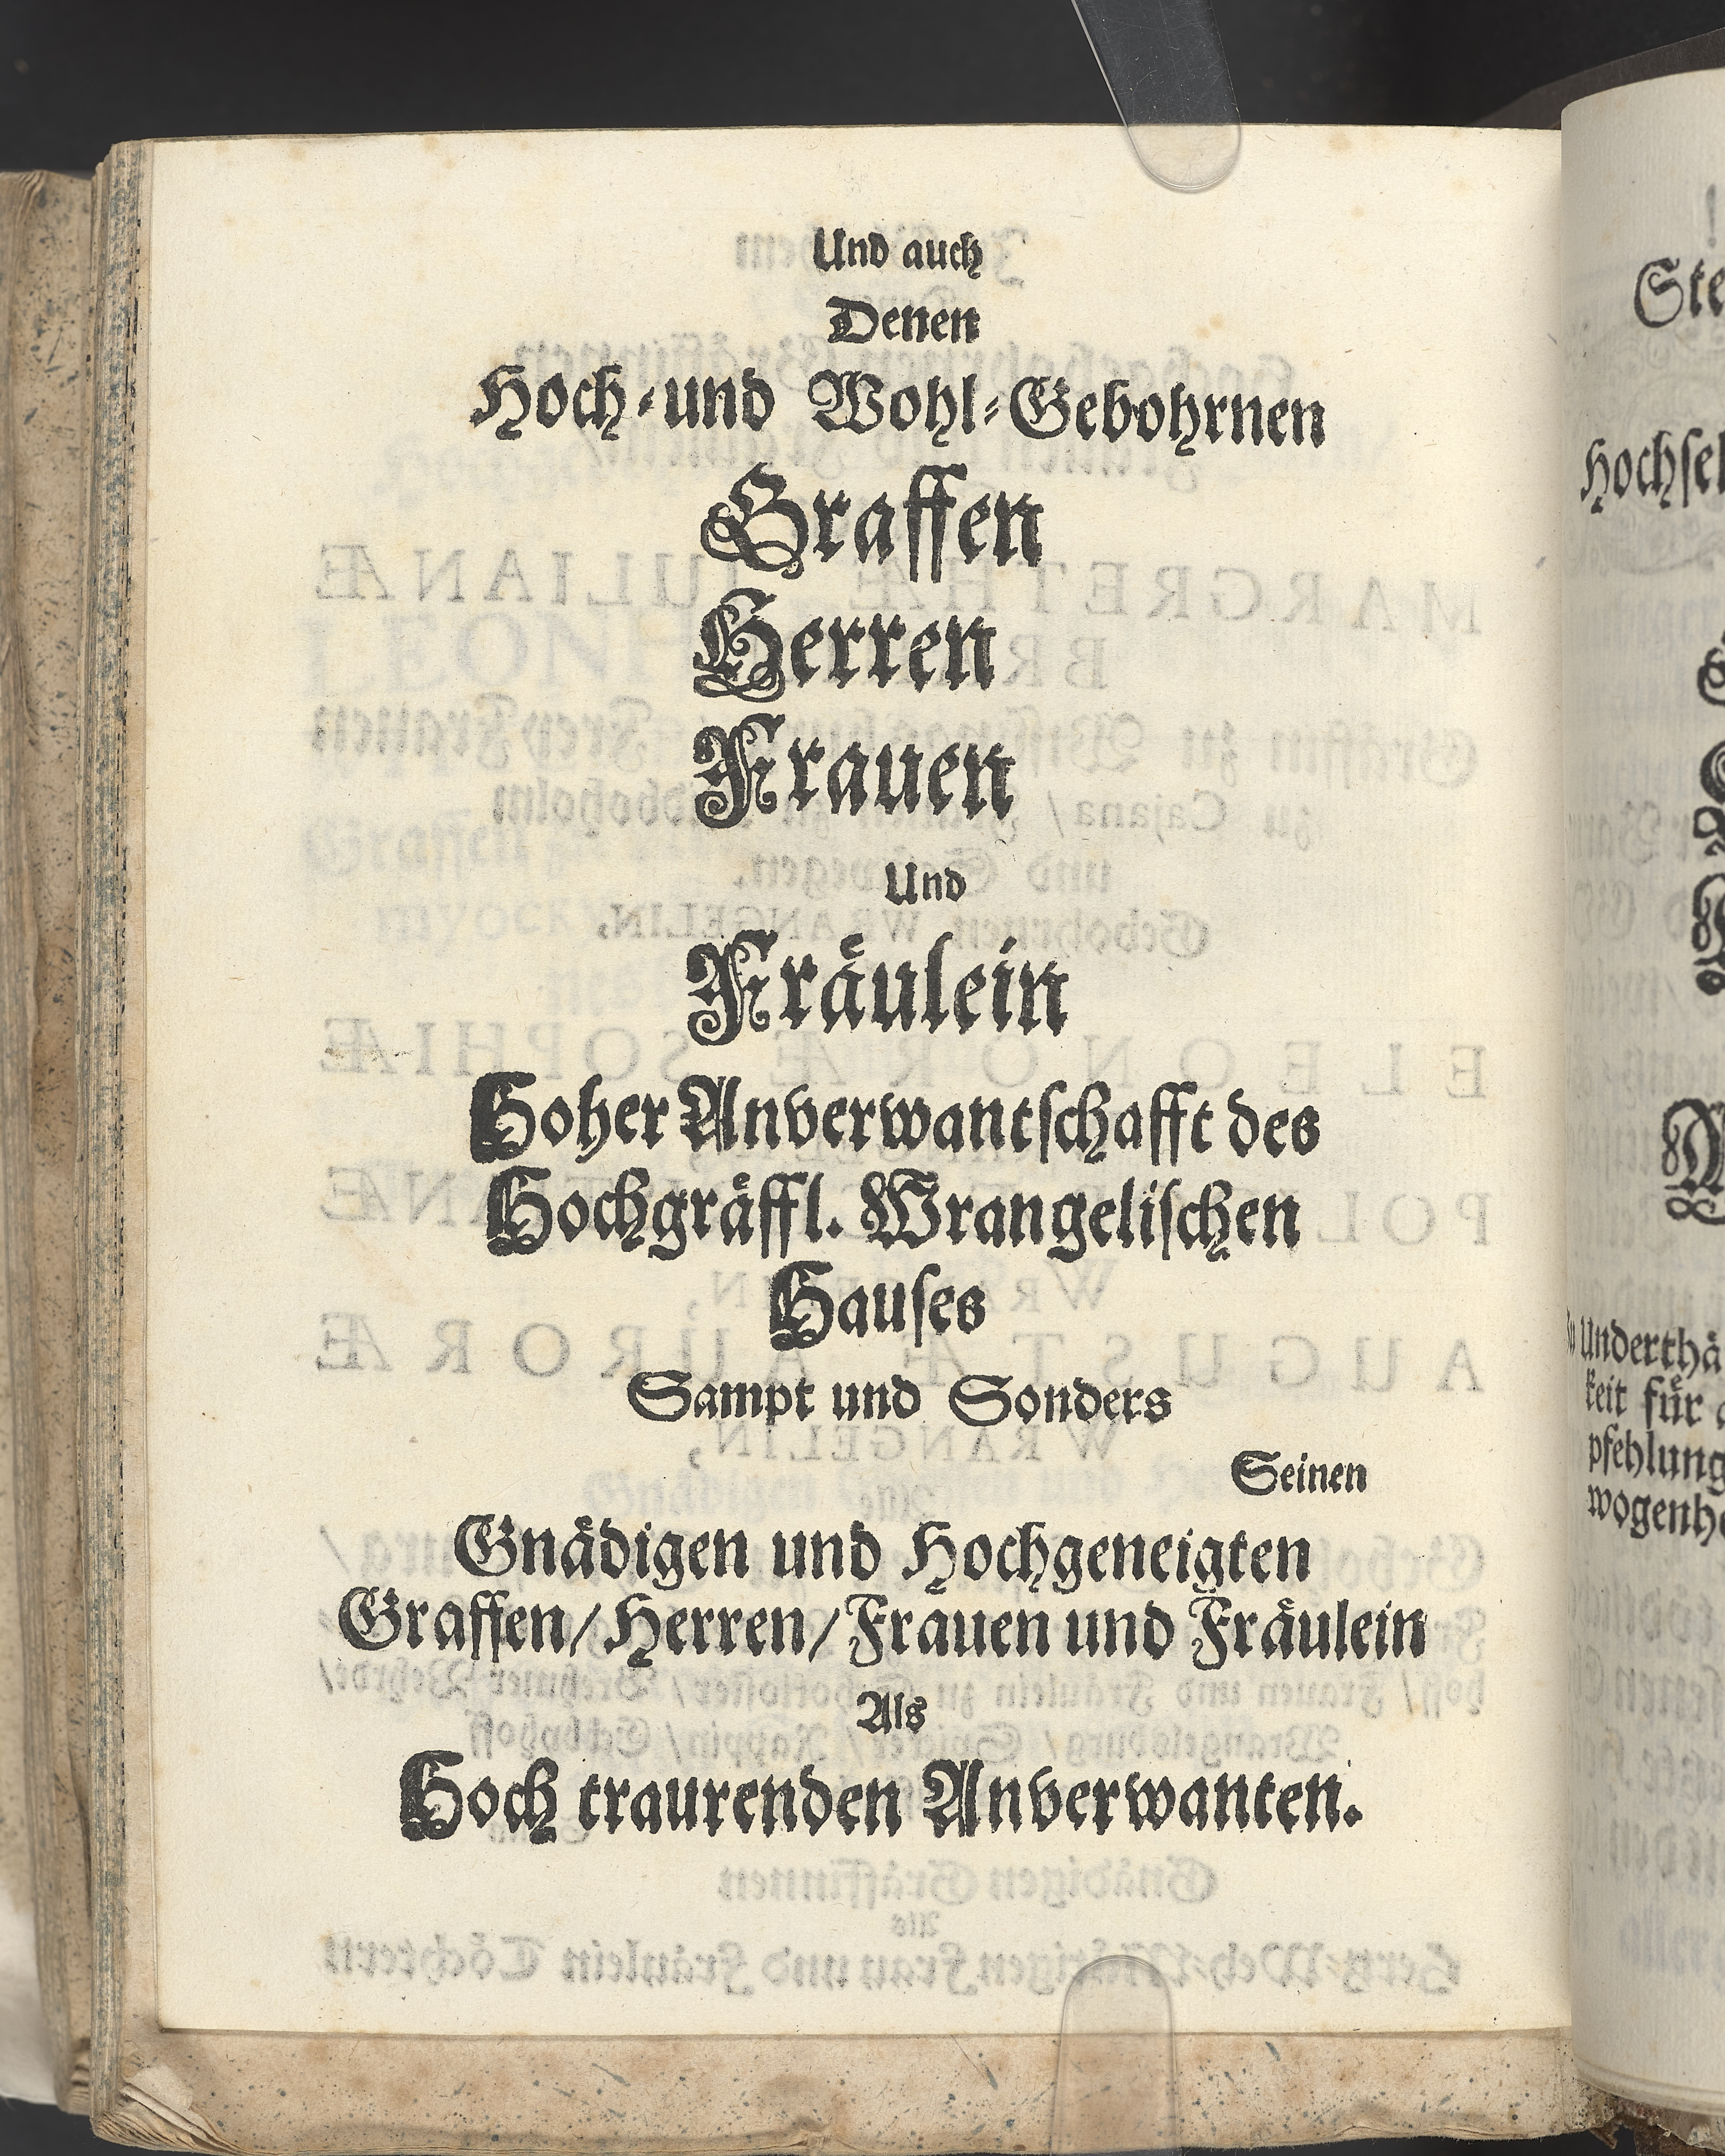 Und auch
Denen
Hoch-und Wohl-Gebohrnen
Graffen
Herren
Frauen
Und
Fraͤulein
Hoher Anverwantſchafft des
Hochgraͤffl. Wrangeliſchen
Hauſes
Sampt und Sonders
Seinen
Gnaͤdigen und Hochgeneigten
Graffen/ Herren/ Frauen und Fraͤulein
Als
Hoch traurenden Anverwanten.